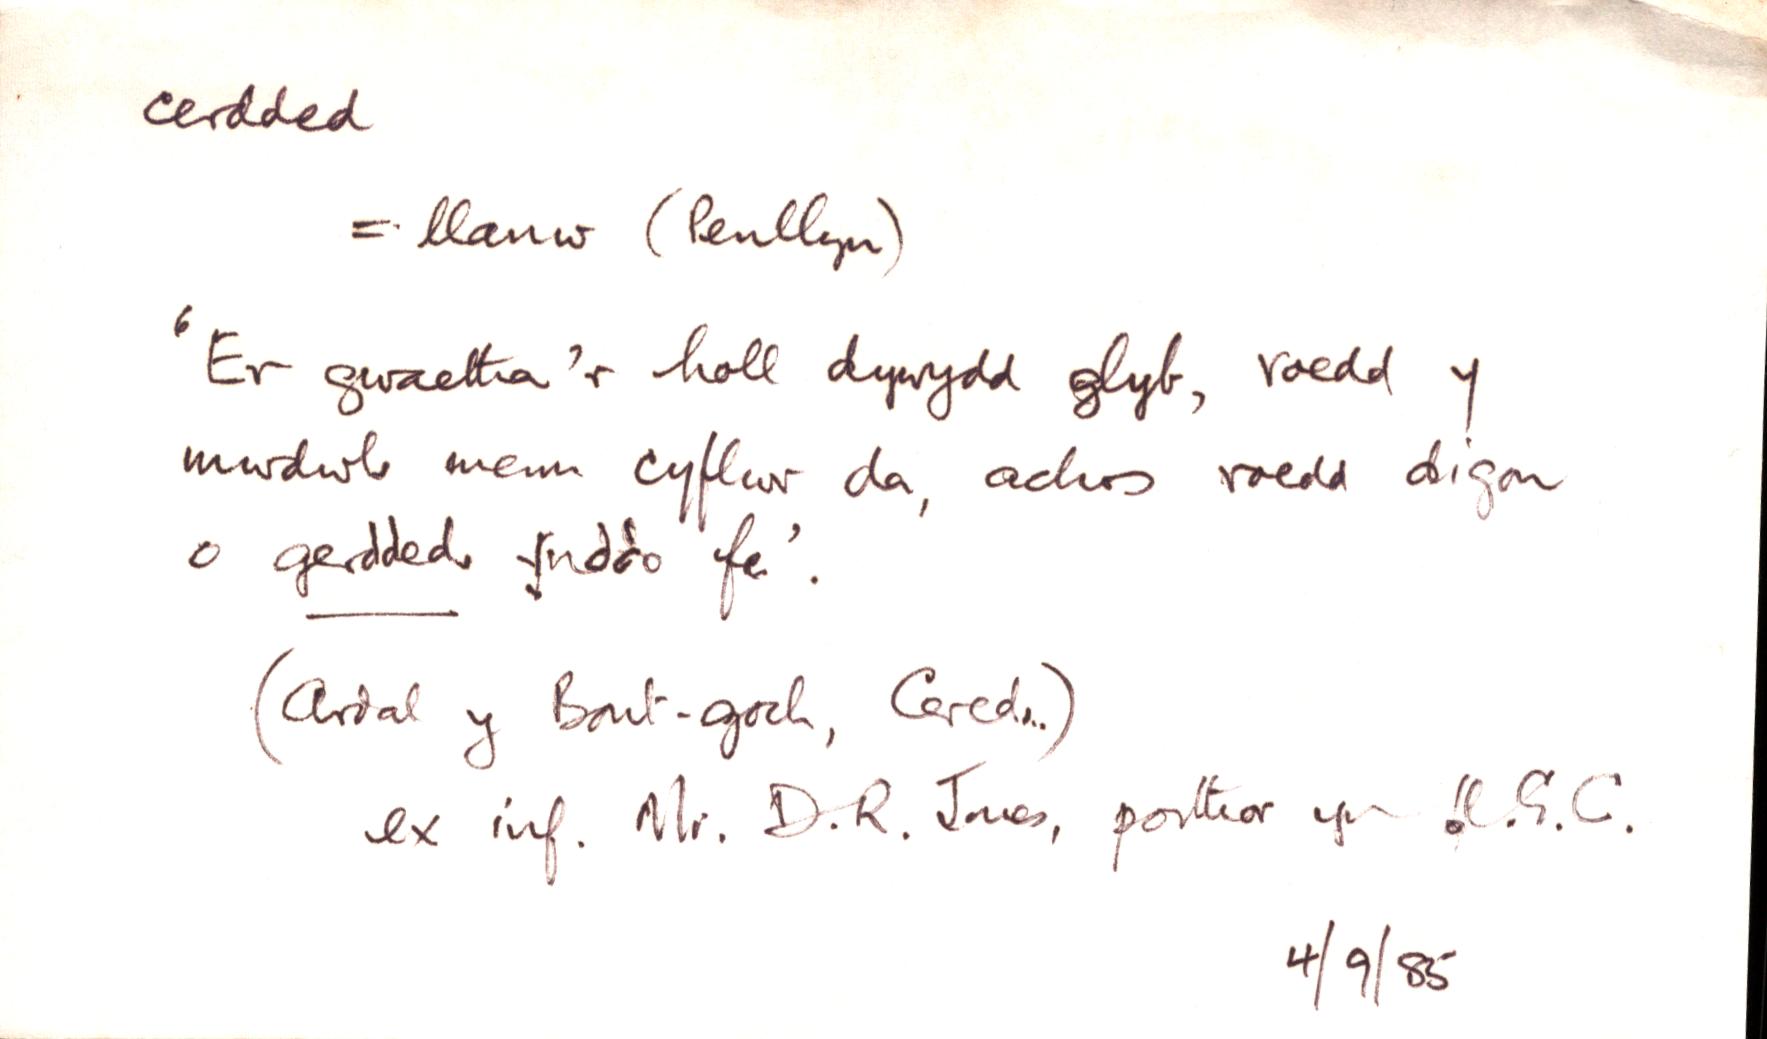 cerdded
= llanw (Penllyn)
'Er gwaetha'r holl dywydd glyb, roedd y
mwdwl mewn cyflwr da, achos roedd digon
o gerdded ynddo fe'.
(Ardal y Bont-goch, Cered..)
ex inf. Mr. D.R. Jones, porthor yn Ll.G.C.
4/9/85